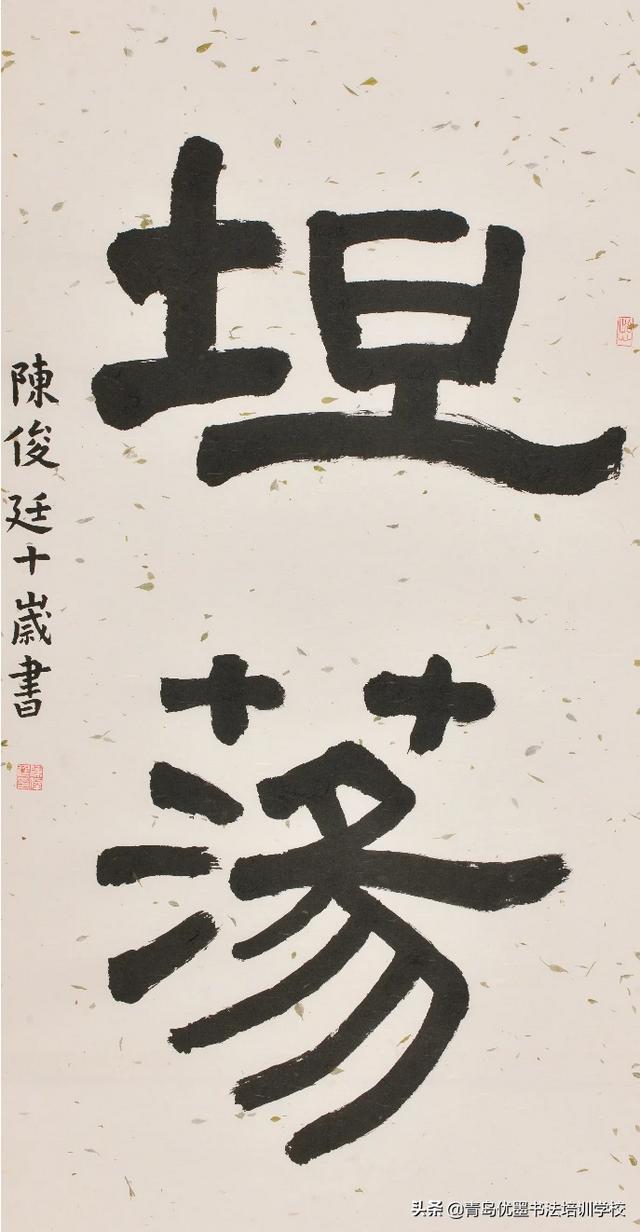 坦
蕩
陳俊廷十歲書
头条 @青岛优墨书法培训学校